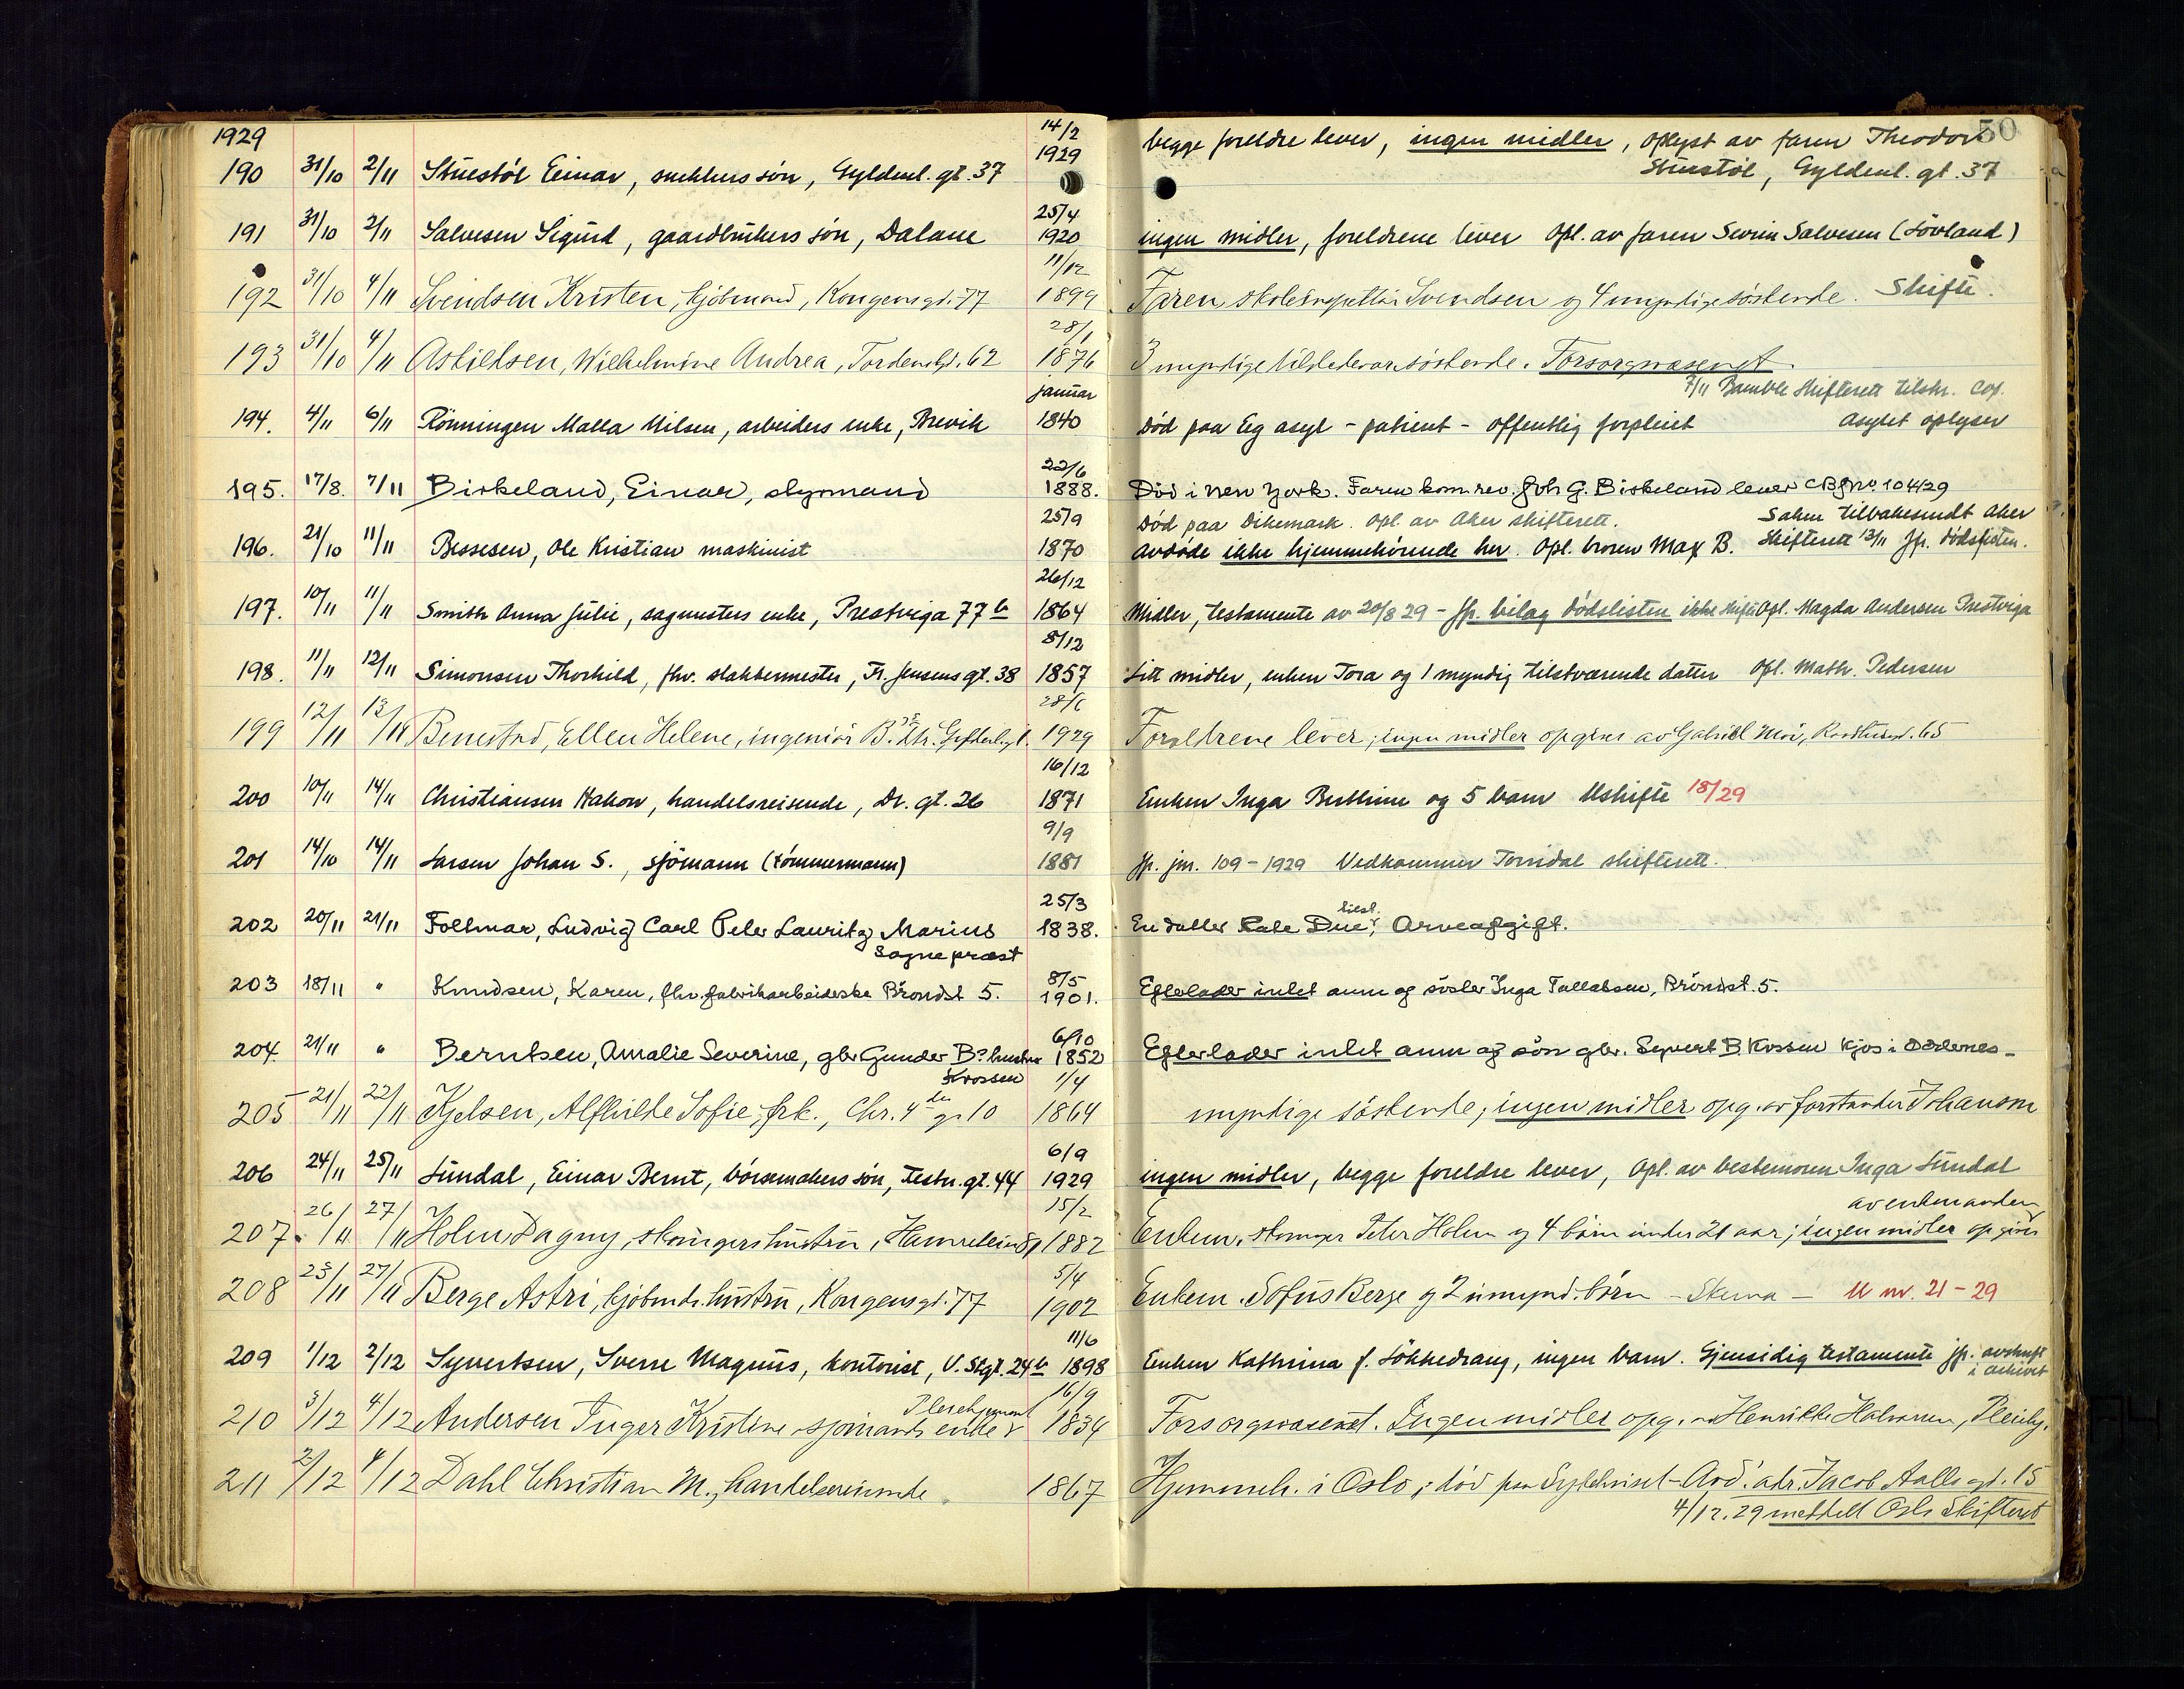 1929
50
190 31/10 2/11 Stuestøl Einar, snekkers søn, Gyldenl. gt. 37 14/2 1929 begge foreldre lever, ingen midler, oplyst av faren Theodor
Stuestøl, Gyldenl. gt. 37
191 31/10 2/11 Salvesen Sigurd, gaardbrukers søn, Dalane 25/4 1920 ingen midler, foreldrene lever Opl. av faren Severin Salvesen (Løvland)
192 31/10 4/11 Svendsen Kristen, kjøbmand, Kongensgt. 77 11/12 1899 Faren skoleinspektør Svendsen og 4 myndige søskende. Skifte.
193 31/10 4/11 Askildsen, Wilhelmine Andrea, Tordenskj. 62 28/1 1876 3 myndige tilstedevær. søskende. Forsorgsvæsenet.
7/11 Bamble skifterett tilskr. Cop.
194. 4/11 6/11 Rönningen Malla Nilsen, arbeiders enke, Brevik januar 1840 Död paa Eg asyl - patient - offentlig forpleiet asylet oplyser
195. 17/8. 7/11 Birkeland, Einar, styrmand 22/6 1888. Död i New York. Faren kom.rev. Joh G. Birkeland lever CBJNo 1044/29
196. 21/10 11/11 Bessesen, Ole Kristian maskinist 25/9 1870 Död paa Dikemark. Opl. av Aker skifterett. Saken tilbakesendt Aker
avdöde ikke hjemmehörende her. Opl. broren Max B. skifterett 13/11 jfr. dödslisten.
197. 10/11 11/11 Smith Anna Julie, sagmesters enke, Prestviga 77 b 26/12 1864 Midler, testamente av 20/8 29 - jfr. bilag dödslisten ikke skifte Opl. Magda Andersen Prestviga
198. 11/11 12/11 Simonsen Thorkild, fhv. stakkermester, Fr. Jensens gt. 38 8/12 1857 Litt midler, enken Tora og 1 myndig tilstværende datter Opl. Math. Pedersen
199 12/11 13/11 Benestad, Ellen Helene, ingeniör B.'s dtr. 28/6 1929 Foreldrene lever; ingen midler opgives av Gabriel Moi, Raadhusgt. 65
200 10/11 14/11 Christiansen Hakon, handelsreisende, Dr. gt. 26 16/12 1871 Enken Inga Berthine og 5 barn Uskifte 18/29
201 14/10 14/11 Larsen Johan S., sjömann (tömmermann) 9/9 1881 jfr. jnr. 109 - 1929 Vedkommer Torridal skifterett.
202 20/11 21/11 Follmar, Ludvig Carl Peter Lauritz Marius 25/3 1838. En datter Kate Due, tilst. Arveafgift.
Sognepræst
203 18/11 " Knudsen, Karen, fhv. fabrikarbeiderske Bröndst 5. 8/5 1901. Efterlader intet anm. og söster Inga Tallaksen, Bröndst. 5.
204. 21/11 " Berntsen, Amalie Severine, gbr Gunder B's hustru 6/10 1852 Efterlader intet anm. og sön gbr. Syvert B. Krossen Kjos i Oddernes -
Krossen
205 21/11 22/11 Kjelsen, Alfhilde Sofie, frk., Chr. 4de gt. 10 1/4 1864 myndige søskende; ingen midler opg. av forstander Johansen
206 24/11 25/11 Lundal, Einar Bernt, børsemakers søn, Festn. gt. 44 6/9 1929 ingen midler, begge foreldre lever, Opl. av bestemoren Inga Lundal
207. 26/11 27/11 Holm Dagny, skomagers hustru, 15/2 1882 Enkem. skomager Peter Holm og 4 börn under 21 aar; ingen midler opgives
av enkemanden
208 23/11 27/11 Berge Astri, kjöbmds. hustru, Kongensgt. 77 5/4 1902 Enkem. Sofus Berge og 2 umynd. börn - Skema - U nr. 21 - 29
209 1/12 2/12 Syvertsen, Sverre Magnus, kontorist, V. Stgt. 24 b 11/6 1898 Enken Kathrina f. Løkkedrang, ingen barn. Gjensidig testamente jfr. avskrift
i arkivet
210 3/12 4/12 Andersen Inger Kristine sjömands enke Pleiehjemmet 16/9 1834 Forsorgsvæsenet. Ingen midler opg. av Henrikke Halvorsen, Pleiehj.
211 2/12 4/12 Dahl Christian M., handelsreisende 1867 Hjemmeh. i Oslo; död paa Sykehuset - Avd. adr. Jacob Aalls gt. 15
4/12. 29 meddelt Oslo Skifterett